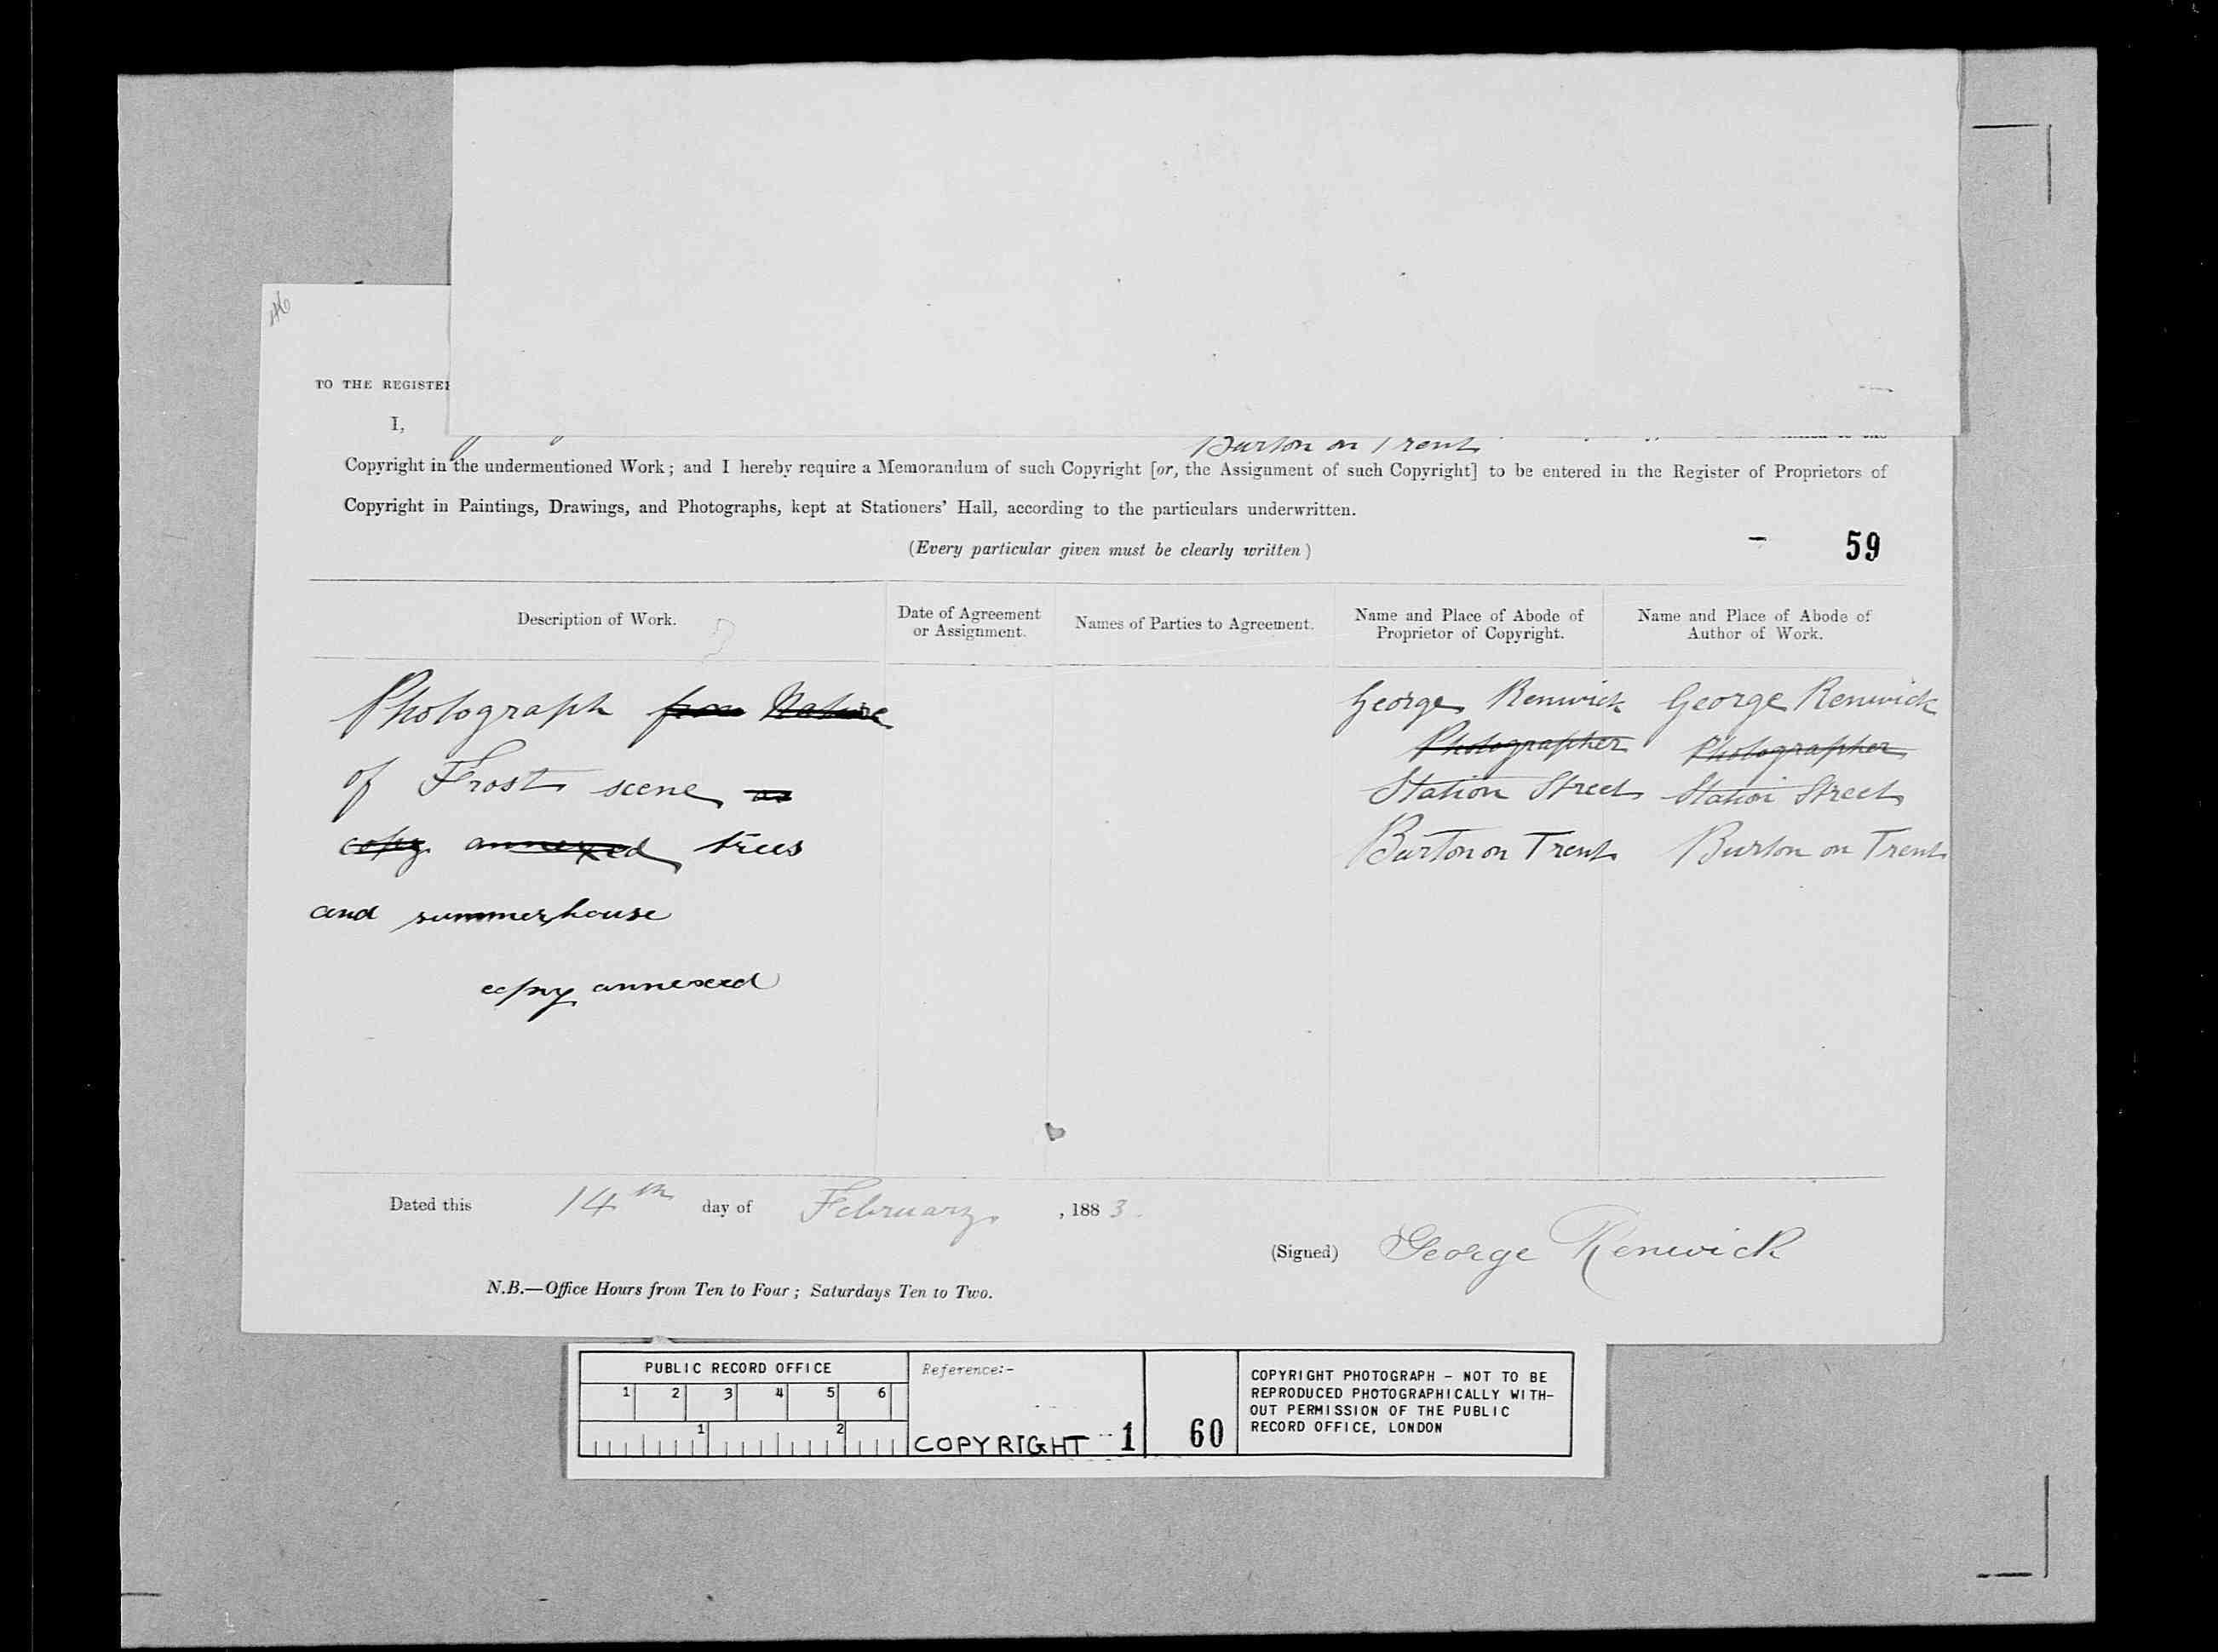 TO THE REGISTE
I,
Burton on Trent
Copyright in the undermentioned Work; and I hereby require a Memorandum of such Copyright [or, the Assignment of such Copyright] to be entered in the Register of Proprietors of
Copyright in Paintings, Drawings, and Photographs, kept at Stationers' Hall, according to the particulars underwritten.
(Every particular given must be clearly written)
59
Description of Work.
Date of Agreement
or Assignment.
Names of Parties to Agreement.
Name and Place of Abode of
Proprietor of Copyright.
Name and Place of Abode of
Author of Work.
Photograph from Nature
of Frost scene as
copy annexed trees
and summerhouse
copy annexed
George Renwick
Photographer
Station Street
Burton on Trent
George Renwick
Photographer
Station Street
Burton on Trent
Dated this 14th day of February, 1883.
(Signed) George Renwick
N.B.—Office Hours from Ten to Four; Saturdays Ten to Two.
PUBLIC RECORD OFFICE
1 2 3 4 5 6
1 2
Reference:-
COPYRIGHT 1
60
COPYRIGHT PHOTOGRAPH - NOT TO BE
REPRODUCED PHOTOGRAPHICALLY WITH-
OUT PERMISSION OF THE PUBLIC
RECORD OFFICE, LONDON